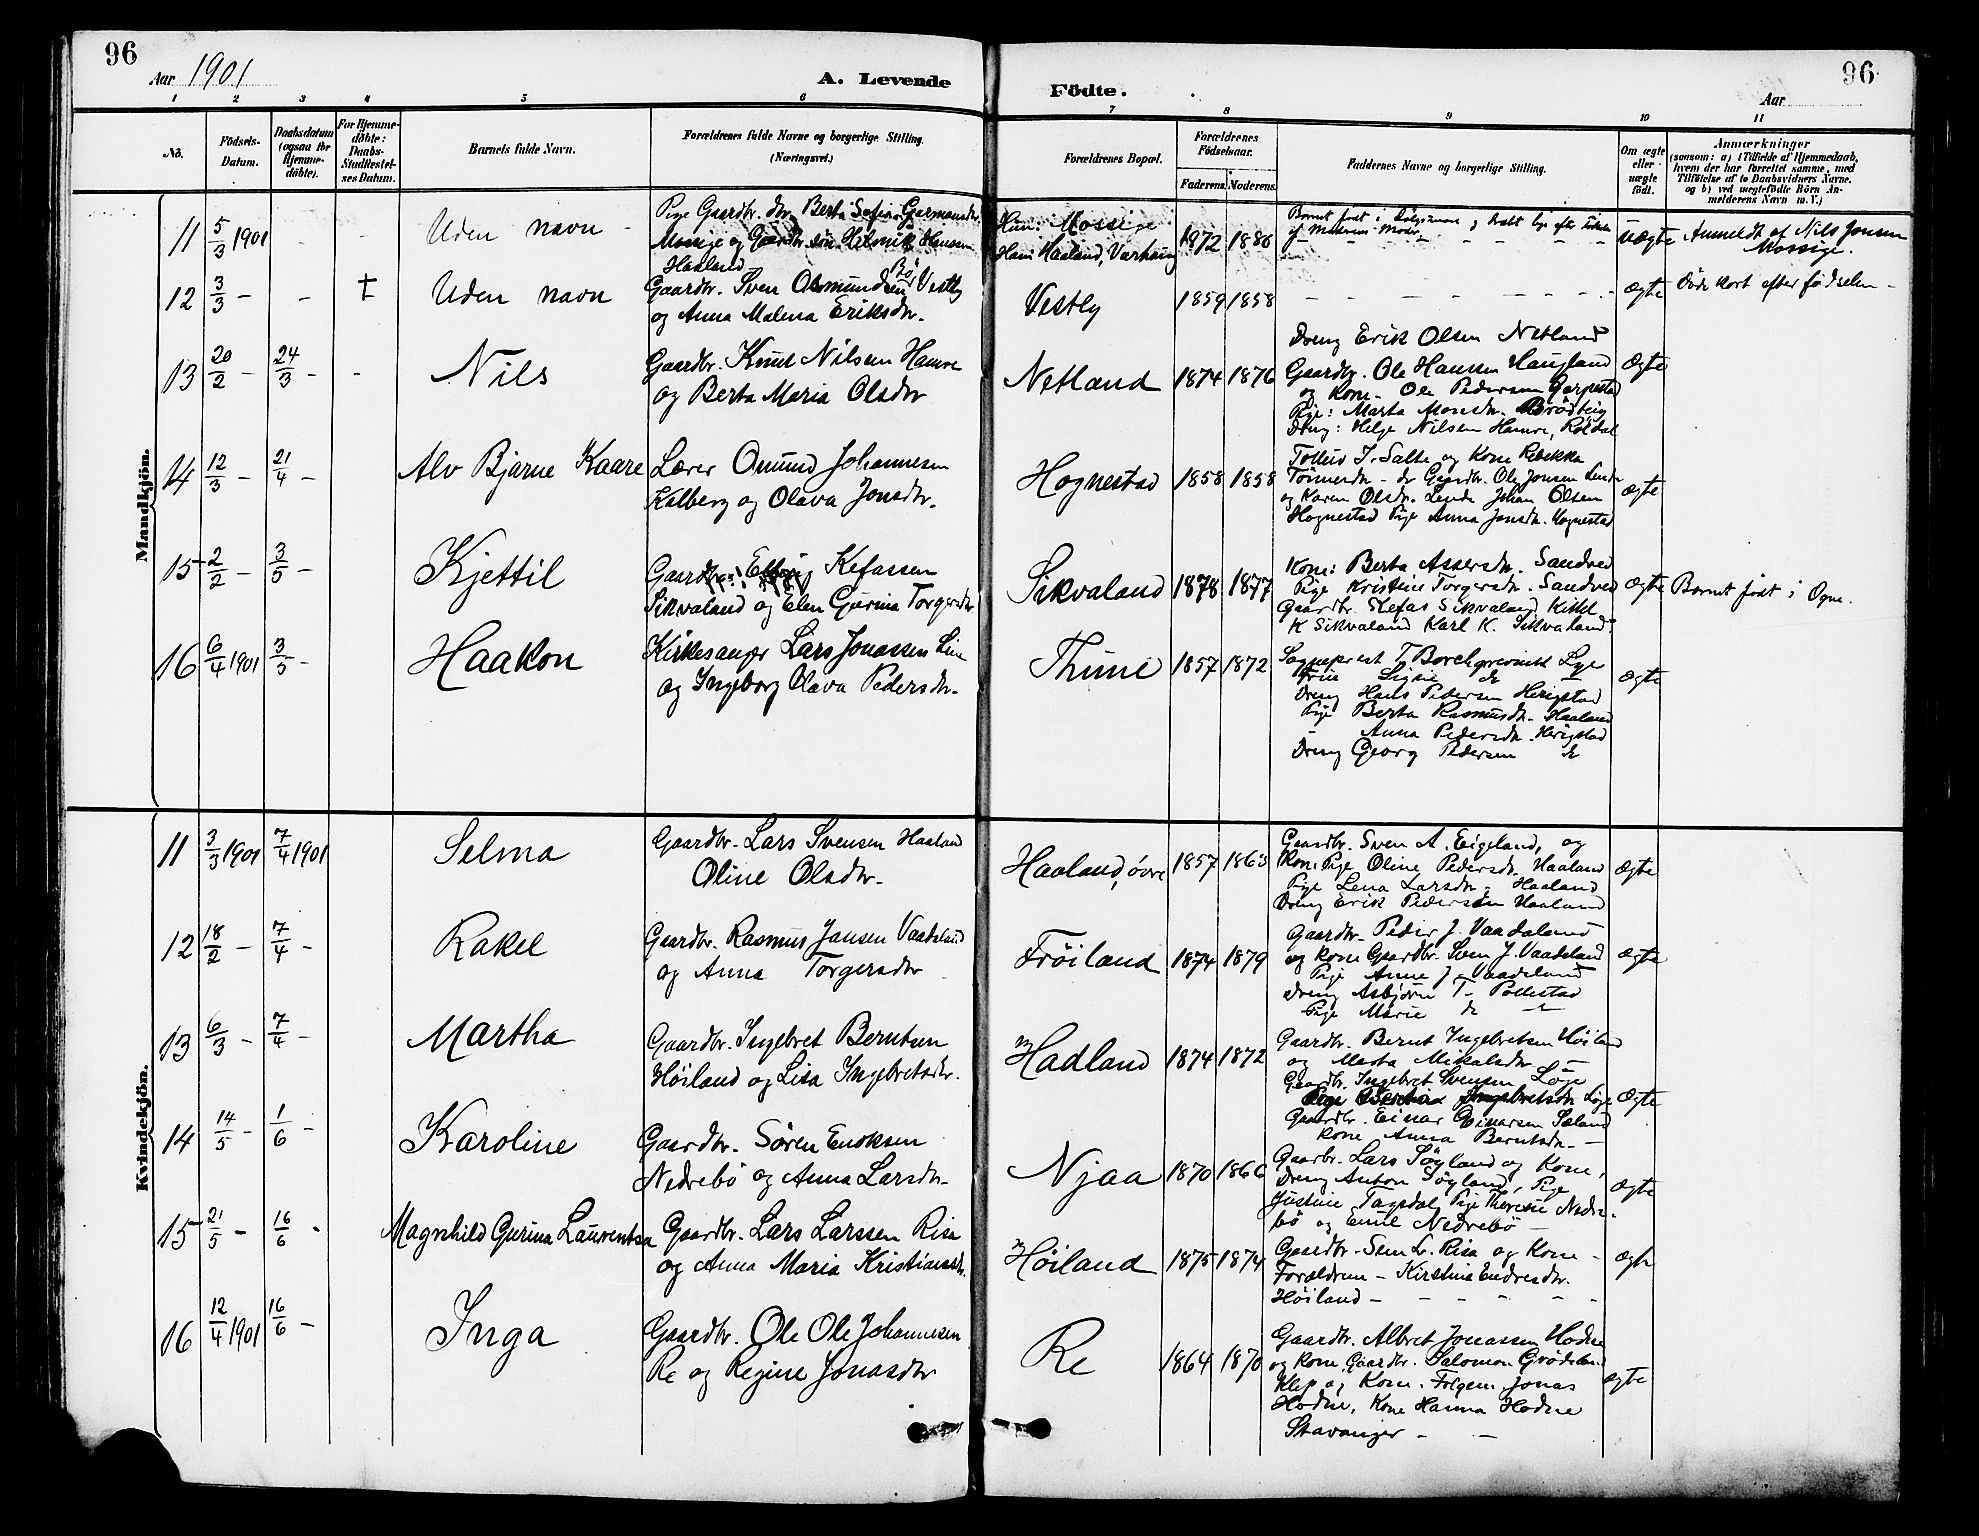 96
Aar 1901
A. Levende
Födte.
Aar
96
1 2 3 4 5 6 7 8 9 10 11
No.
Födsels-
Datum.
Daabsdatum
(ogsaa for
Hjemme-
döbte).
For Hjemme-
döbte:
Daabs-
Stadfæstel-
ses Datum.
Barnets fulde Navn.
Forældrenes fulde Navne og borgerlige Stilling.
(Næringsvei.)
Forældrenes Bopæl.
Forældrenes
Födselsaar.
Faderens. Moderens.
Faddernes Navne og borgerlige Stilling.
Om ægte
eller
uægte
födt.
Anmærkninger
(saasom: a) i Tilfælde af Hjemmedaab,
hvem der har forrettet samme, med
Tilföielse af to Daabsvidners Navne.
og b) ved uægtefödte Börn An-
melderens Navn m. V.)
Mandkjön.
11 5/3 1901 - - Uden navn -
Pige Gaardbr. dtr. Berta Sofie Germundsdtr.
Mossige og Gaardbr. sön Helmik Hansen
Haaland
Hun: Mossige
Ham: Haaland, Varhaug
1872 1880
Barnet født i
af Moderens Moder
Uægte
Anmeldt af Nils Jonsen
Mossige.
12 3/3 - - † Uden navn
Gaardbr. Sven Osmundsen Bö, Vestly
og Anna Malena Eriksdtr.
Vestly 1859 1858 ægte Döde kort efter födselen -
13 20/2 - 24/3 - - Nils
Gaardbr. Knut Nilsen Hamre
og Berta Maria Olsdtr
Netland 1874 1876
Dreng Erik Olsen Netland
Gaardbr. Ole Hansen Haugland
og Kone. Ole Pedersen Garpestad
Pige: Marta Monsdtr. Brödteig
Dreng: Helge Nilsen Hamre, Röldal
Ægte
14 12/3 - 21/4 - Alv Bjarne Kaare
Lærer Omund Johannesen
Kalberg og Olava Jonsdtr.
Hognestad 1858 1858
Tollev J. Salte og Kone Rebekka
Tönnesdtr - do Gaardbr. Ole Jonsen Lende
og Karen Olsdtr. Lende Johan Olsen
Hognestad Pige Anna Jonsdtr. Hognestad
Ægte
15 2/2 - 3/5 - Kjettil
Gaardbr. Kefassen
Sikvaland og Elen Gurina Torgersdtr
Sikvaland 1878 1877
Kone: Berta Assersdtr. Sandved
Pige Kristine Torgersdtr. Sandved
Gaardbr. Kefas Sikvaland Kittel
K Sikvaland Karl K. Sikvaland.
Ægte Barnet födt i Ogne.
16 6/4 1901 3/5 - Haakon
Kirkesanger Lars Jonassen Line
og Ingeborg Olava Pedersdtr.
Thime 1857 1872
Sogneprest T. Borchgrevink Lye
Frue Signe do -
Dreng Hans Pedersen Herigstad
Pige Berta Rasmusdtr. Haaland
Anna Pedersdtr. Herigstad
Dreng Georg Pedersen do
Ægte
Kvindekjön.
11 3/3 1901 7/4 1901 Selma
Gaardbr. Lars Svensen Haaland
Oline Olsdtr.
Haaland, övre 1857 1863
Gaardbr. Sven A. Eigeland, og
Kone Pige Oline Pedersdtr. Haaland
Pige Lena Larsdtr. Haaland
Dreng Erik Pedersen Haaland
Ægte
12 18/2 - 7/4 - Rakel
Gaardbr. Rasmus Jansen Vaadeland
og Anna Torgersdtr
Fröiland 1874 1879
Gaardbr. Peder J. Vaadaland
og Kone Gaardbr. Sven J. Vaadeland
Pige Anne J. Vaadeland
Dreng Asbjörn T - Pollestad
Pige Marie do -
Ægte
13 6/3 - 7/4 - Martha
Gaardbr. Ingebret Berntsen
Höiland og Lisa Ingebretsdtr.
Hadland 1874 1872
Gaardbr. Bernt Ingebretsen Höiland
og Marta Mikalsdtr -
Gaardbr. Ingebret Svensen Löge
Pige Ingebretsdtr Löge
Gaardbr. Einar Einarsen Sæland
Kone Anna Berntsdtr. -
Ægte
14 14/5 - 1/6 - Karoline
Gaardbr. Sören Enoksen
Nedrebö og Anna Larsdtr.
Njaa 1870 1866
Gaardbr. Lars Söyland og Kone,
Dreng Anton Söyland, Pige
Justine Tagsdal, Pige Therese Nedre-
bö og Emil Nedrebö -
Ægte
15 21/5 - 16/6 - Magnhild Gurina Laurentsa
Gaardbr. Lars Larssen Risa
og Anna Maria Kristiansdtr.
Höiland 1875 1874
Gaardbr. Sem L. Risa og Kone -
Forældrene - Kirstine Endresdtr.
Höiland -
ægte
16 12/4 1901 16/6 - Inga
Gaardbr. Ole Ole Johannesen
Re og Regine Jonasdtr
Re 1864 1870
Gaardbr. Albret Jonassen Hodne
og Kone, Gaardbr. Salomon Grödeland
Klep og Kone. Jonas
Hodne, Kone Hanna Hodne
Stavanger -
ægte